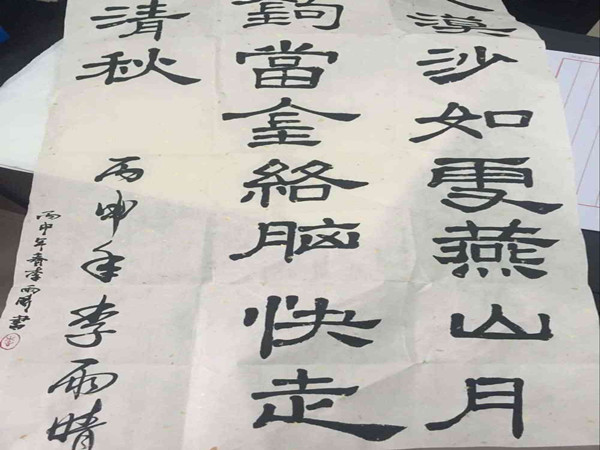 漠沙如雪燕山月
鉤當金絡脑快走
清秋
丙申年李雨晴
丙申年李雨晴書